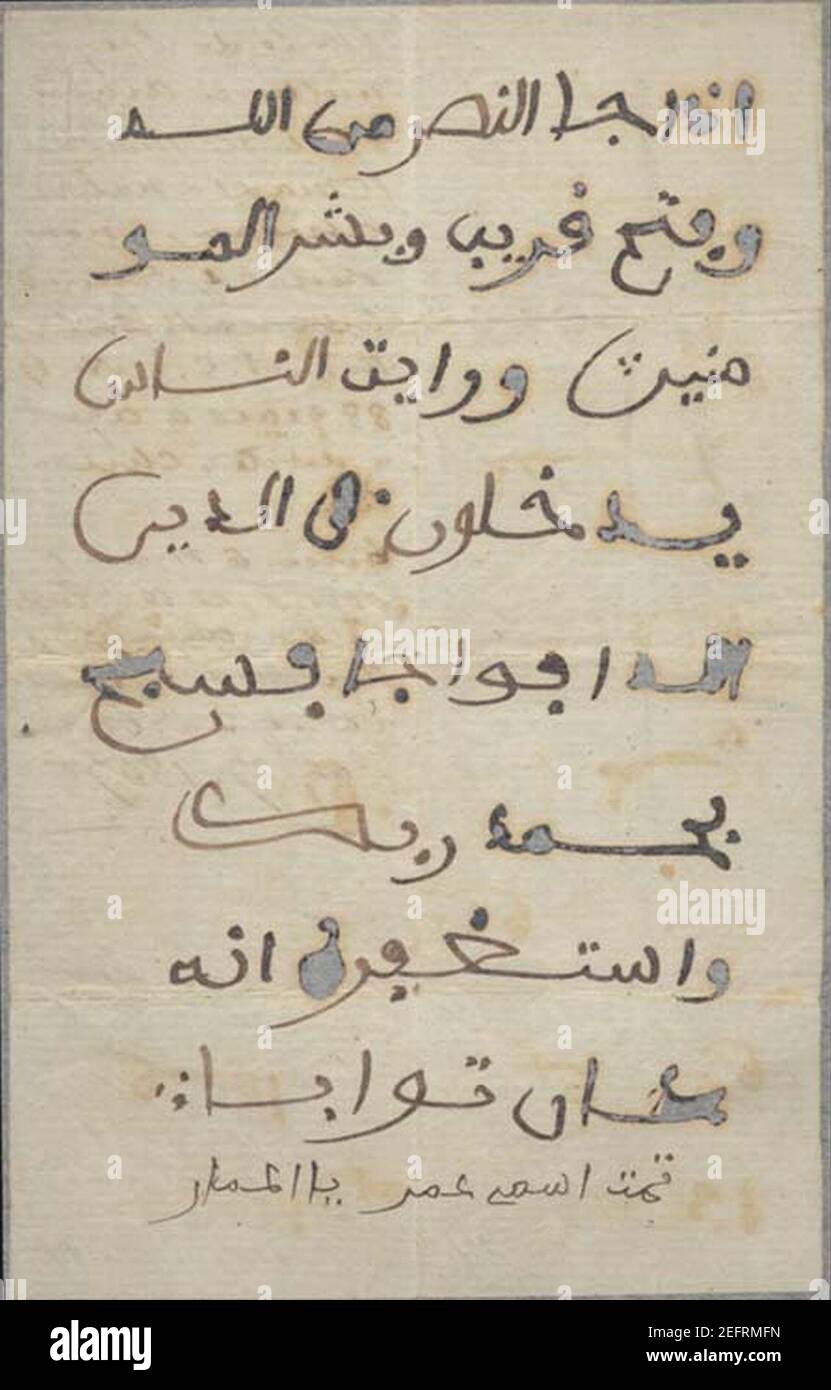 اذا جا النصر من الله
وفتح فريب وبشر المو
منين ورايت الناس
يد خلون في الدين
الله افواجا فسبح
بحمد ربك
واستغفره انه
كان توابا
تمت اسمي عمر
alamy
Image ID: 2EFRMFN
www.alamy.com